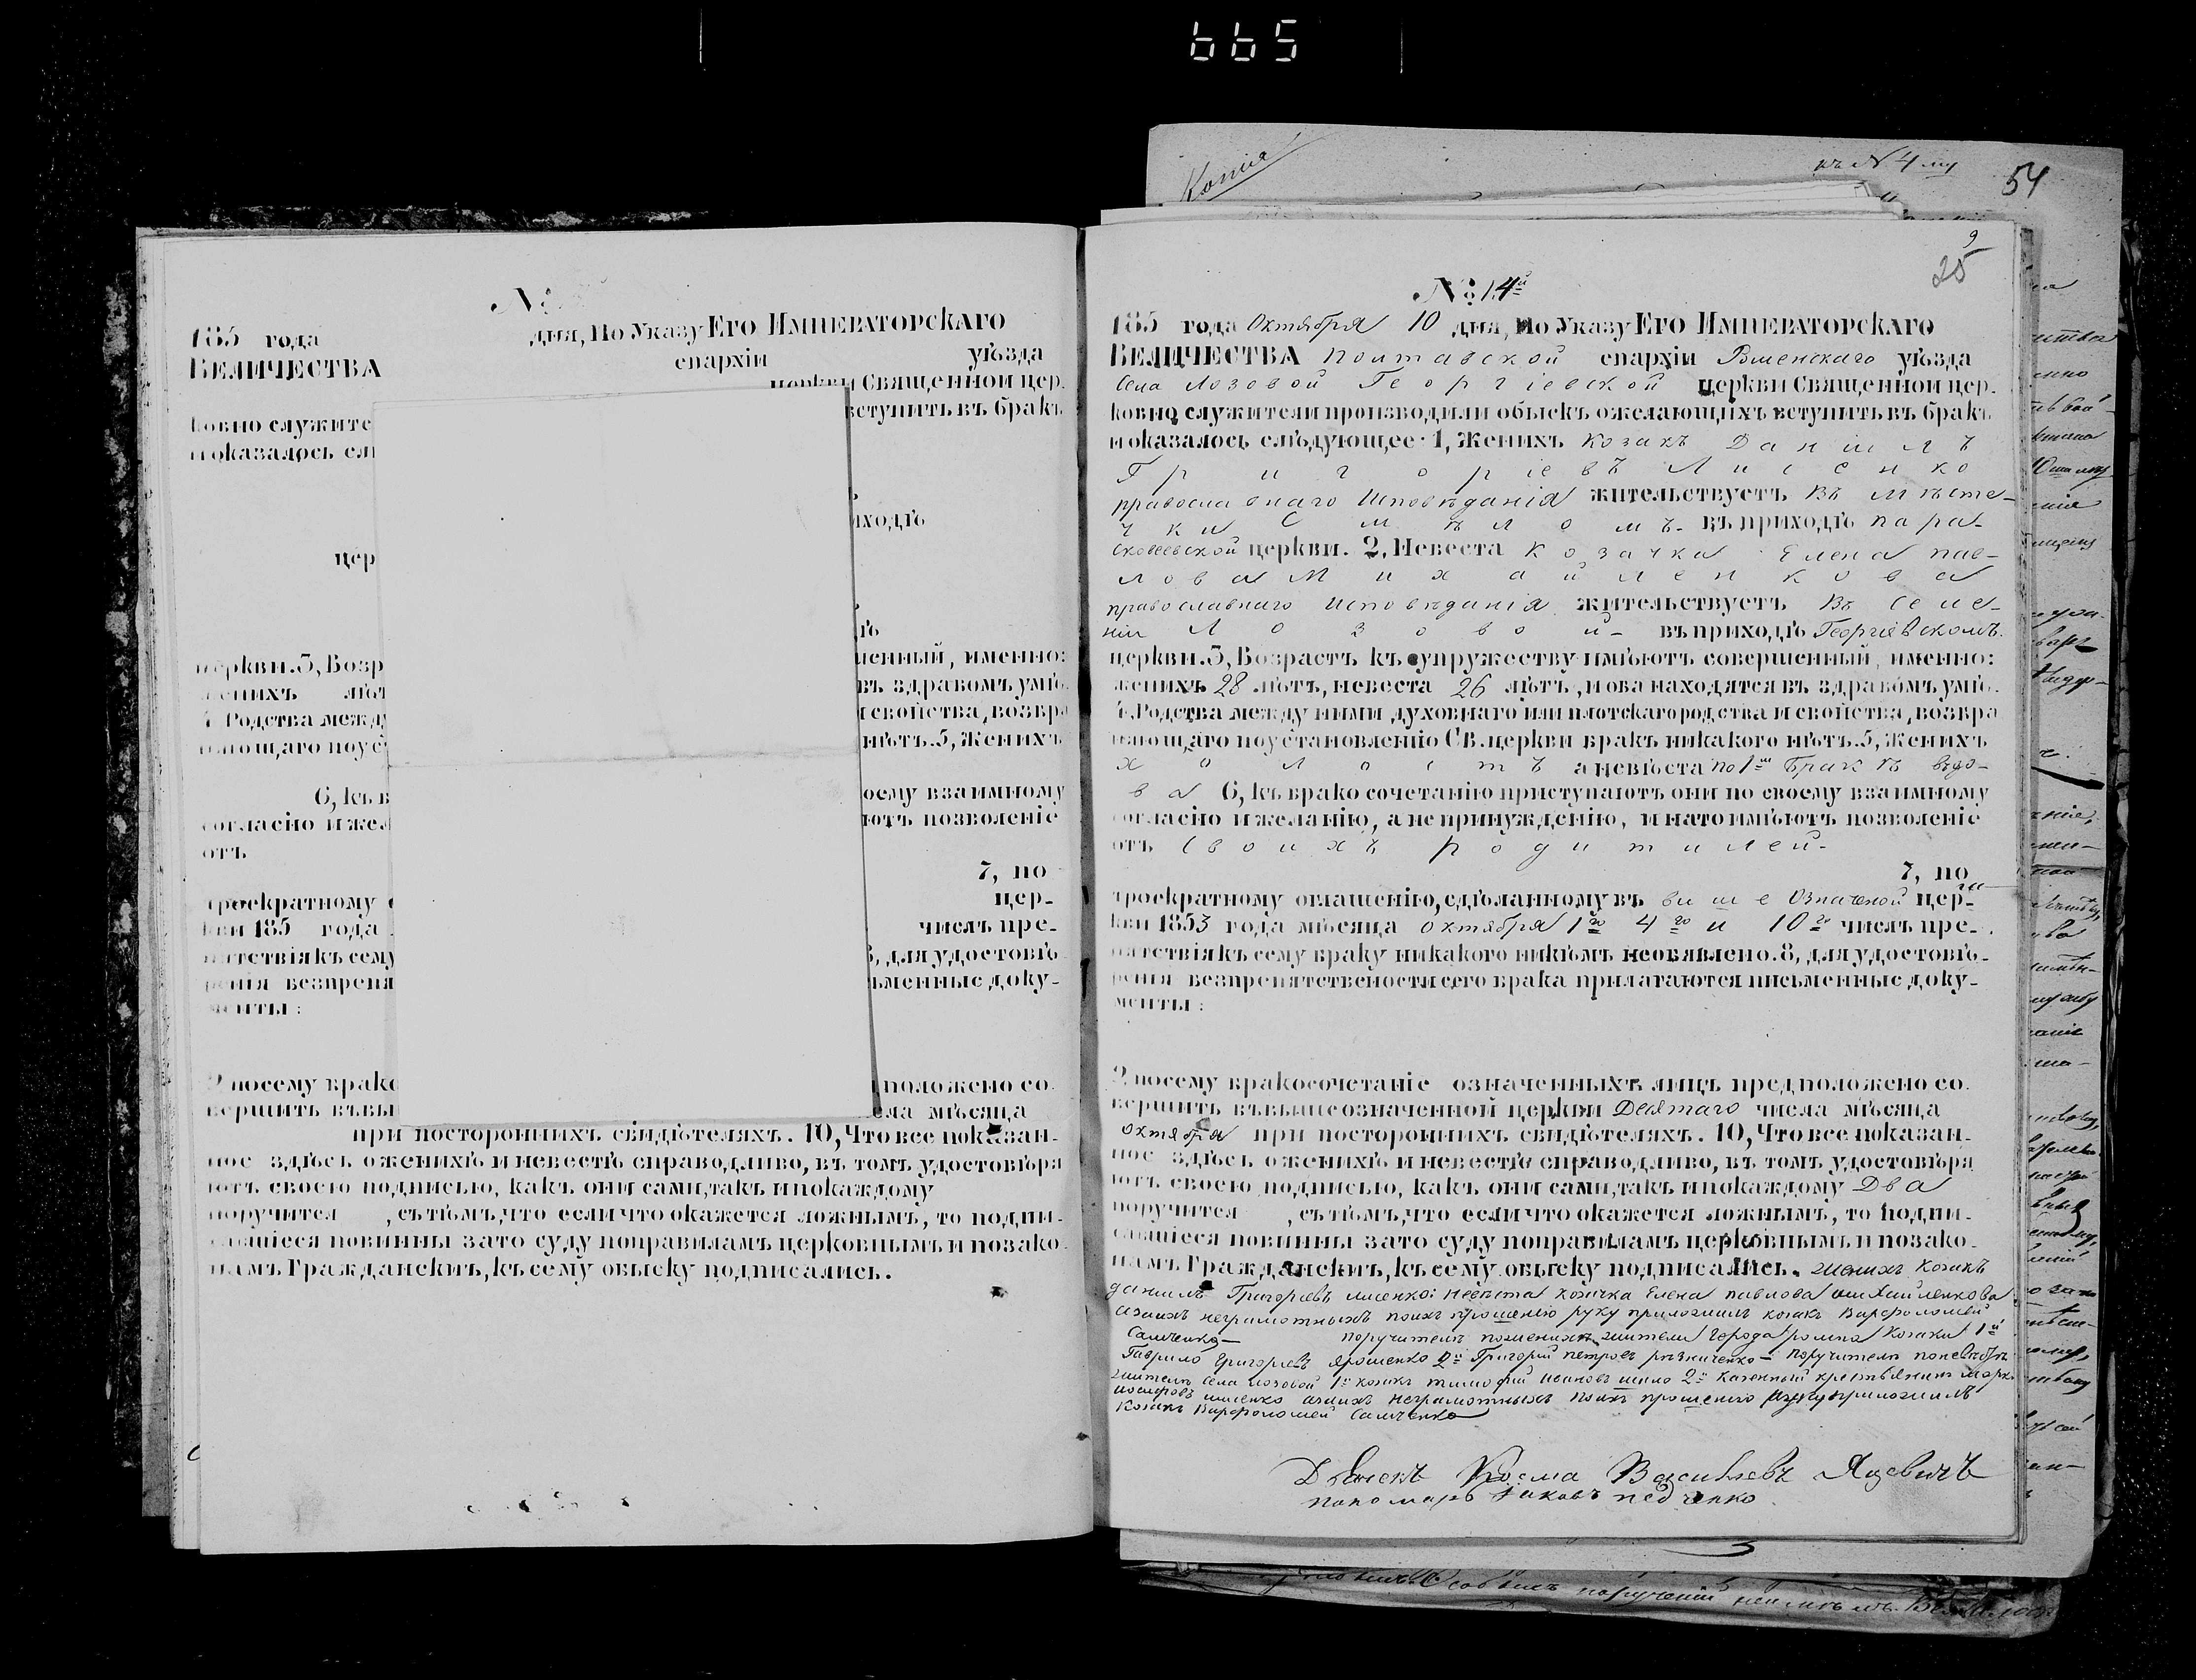 665
Копія
къ N 4 му
54
№
185 года дня, По Указу Его Императорскаго
Величества епархіи уѣзда
церкви Священной цер.
ковно служите вступить въ бракъ
и оказалось сл
иходѣ
цер
церкви. 3, Возр шенный, именно:
женихъ лѣт въ здравомъ умѣ.
4 Родства между и свойства, возвра
щающаго по ус нѣтъ. 5, Женихъ
6, къ в оему взаимному
согласію и жел ютъ позволеніе
отъ
7, по
троекратному цер-
кви 185 года числъ пре-
пятствія къ сему 8, для удостовѣ-
ренія безпрепя ьменные доку-
менты:
9 посему брако положено со
вершить въ вы сла мѣсяца
при постороннихъ свидѣтеляхъ. 10, Что все показан-
ное здѣсь о женихѣ и невестѣ справодливо, въ томъ удостовѣря
ютъ своею подписью, какъ они сами, такъ и по каждому
поручителя , съ тѣмъ, что если что окажется ложнымъ, то подпи-
савшіеся повинны за то суду по правиламъ церковнымъ и по зако-
намъ Граждански‌ъ, къ сему обыску подписались.
9
25
№ 14й
185 года Октября 10 дня, По Указу Его Императорскаго
Величества полтавской епархіи Роменскаго уѣзда
села Лозовой Георгіевской церкви Священной цер.
ковно служители производили обыскъ о желающихъ вступить въ бракъ
и оказалось слѣдующее: 1, Женихъ козакъ Даніилъ
Григоріевъ Лисенко
православнаго Исповѣданія жительствуетъ въ мѣсте-
чки Смѣломъ- въ приходѣ пара-
сковеевской церкви. 2, Невеста козачка Елена пав-
лова Михайленкова
православнаго исповѣданія жительствуетъ въ селе-
ніи Лозовой- въ приходѣ Георгіевскомъ.
церкви. 3, Возрастъ къ супружеству имѣютъ совершенный, именно:
женихъ 28 лѣтъ, невеста 26 лѣтъ, и оба находятся въ здравомъ умѣ.
4, Родства между ними духовнаго или плотскаго родства и свойства, возвра
щающаго по установленію Св. церкви бракъ никакого нѣтъ. 5, Женихъ
холостъ а невѣста по 1м бракѣ вдо-
ва 6, къ брако сочетанію приступаютъ они по своему взаимному
согласію и желанію, а не принужденію, и на то имѣютъ позволеніе
отъ своихъ родителей-
7, по
троекратному оглашенію, сдѣланному въ више Означеной цер-
кви 1853 года мѣсяца октября 1го 4го и 10го числъ пре-
пятствія къ сему браку никакого никѣмъ необявлено. 8, для удостовѣ-
ренія безпрепятствености сего брака прилагаются письменные доку-
менты:
9 посему бракосочетаніе означенныхъ лицъ предположено со
вершить въ вышеозначенной церкви Десятаго числа мѣсяца
октября при постороннихъ свидѣтеляхъ. 10, Что все показан-
ное здѣсь о женихѣ и невестѣ справодливо, въ томъ удостовѣря
ютъ своею подписью, какъ они сами, такъ и по каждому Два
поручителя , съ тѣмъ, что если что окажется ложнымъ, то подпи-
савшіеся повинны за то суду по правиламъ церковнымъ и по зако-
намъ Гражданскиъ, къ сему обыску подписались. женихъ козакъ
данилъ Григоріевъ лисенко: невѣста козачка Елена павлова михайленкова
аза ихъ неграмотныхъ поихъ прошенію руку приложилъ козакъ Варфоломей
Самченко- поручители по женихѣ жители города ромна козаки 1й
Гаврило Григоріевъ Ярошенко 2й Григорій петровъ резниченко- поручители по невѣстѣ
жители села лозовой 1й козакъ тимофій ивановъ шило 2й казенный крестьянинъ марко
іосифовъ лисенко аза ихъ неграмотныхъ поихъ прошенію руку приложилъ
козакъ Варфоломей Самченко
Дьячекъ Косма Васильевъ Яцевичъ
пономарь Іаковъ педченко